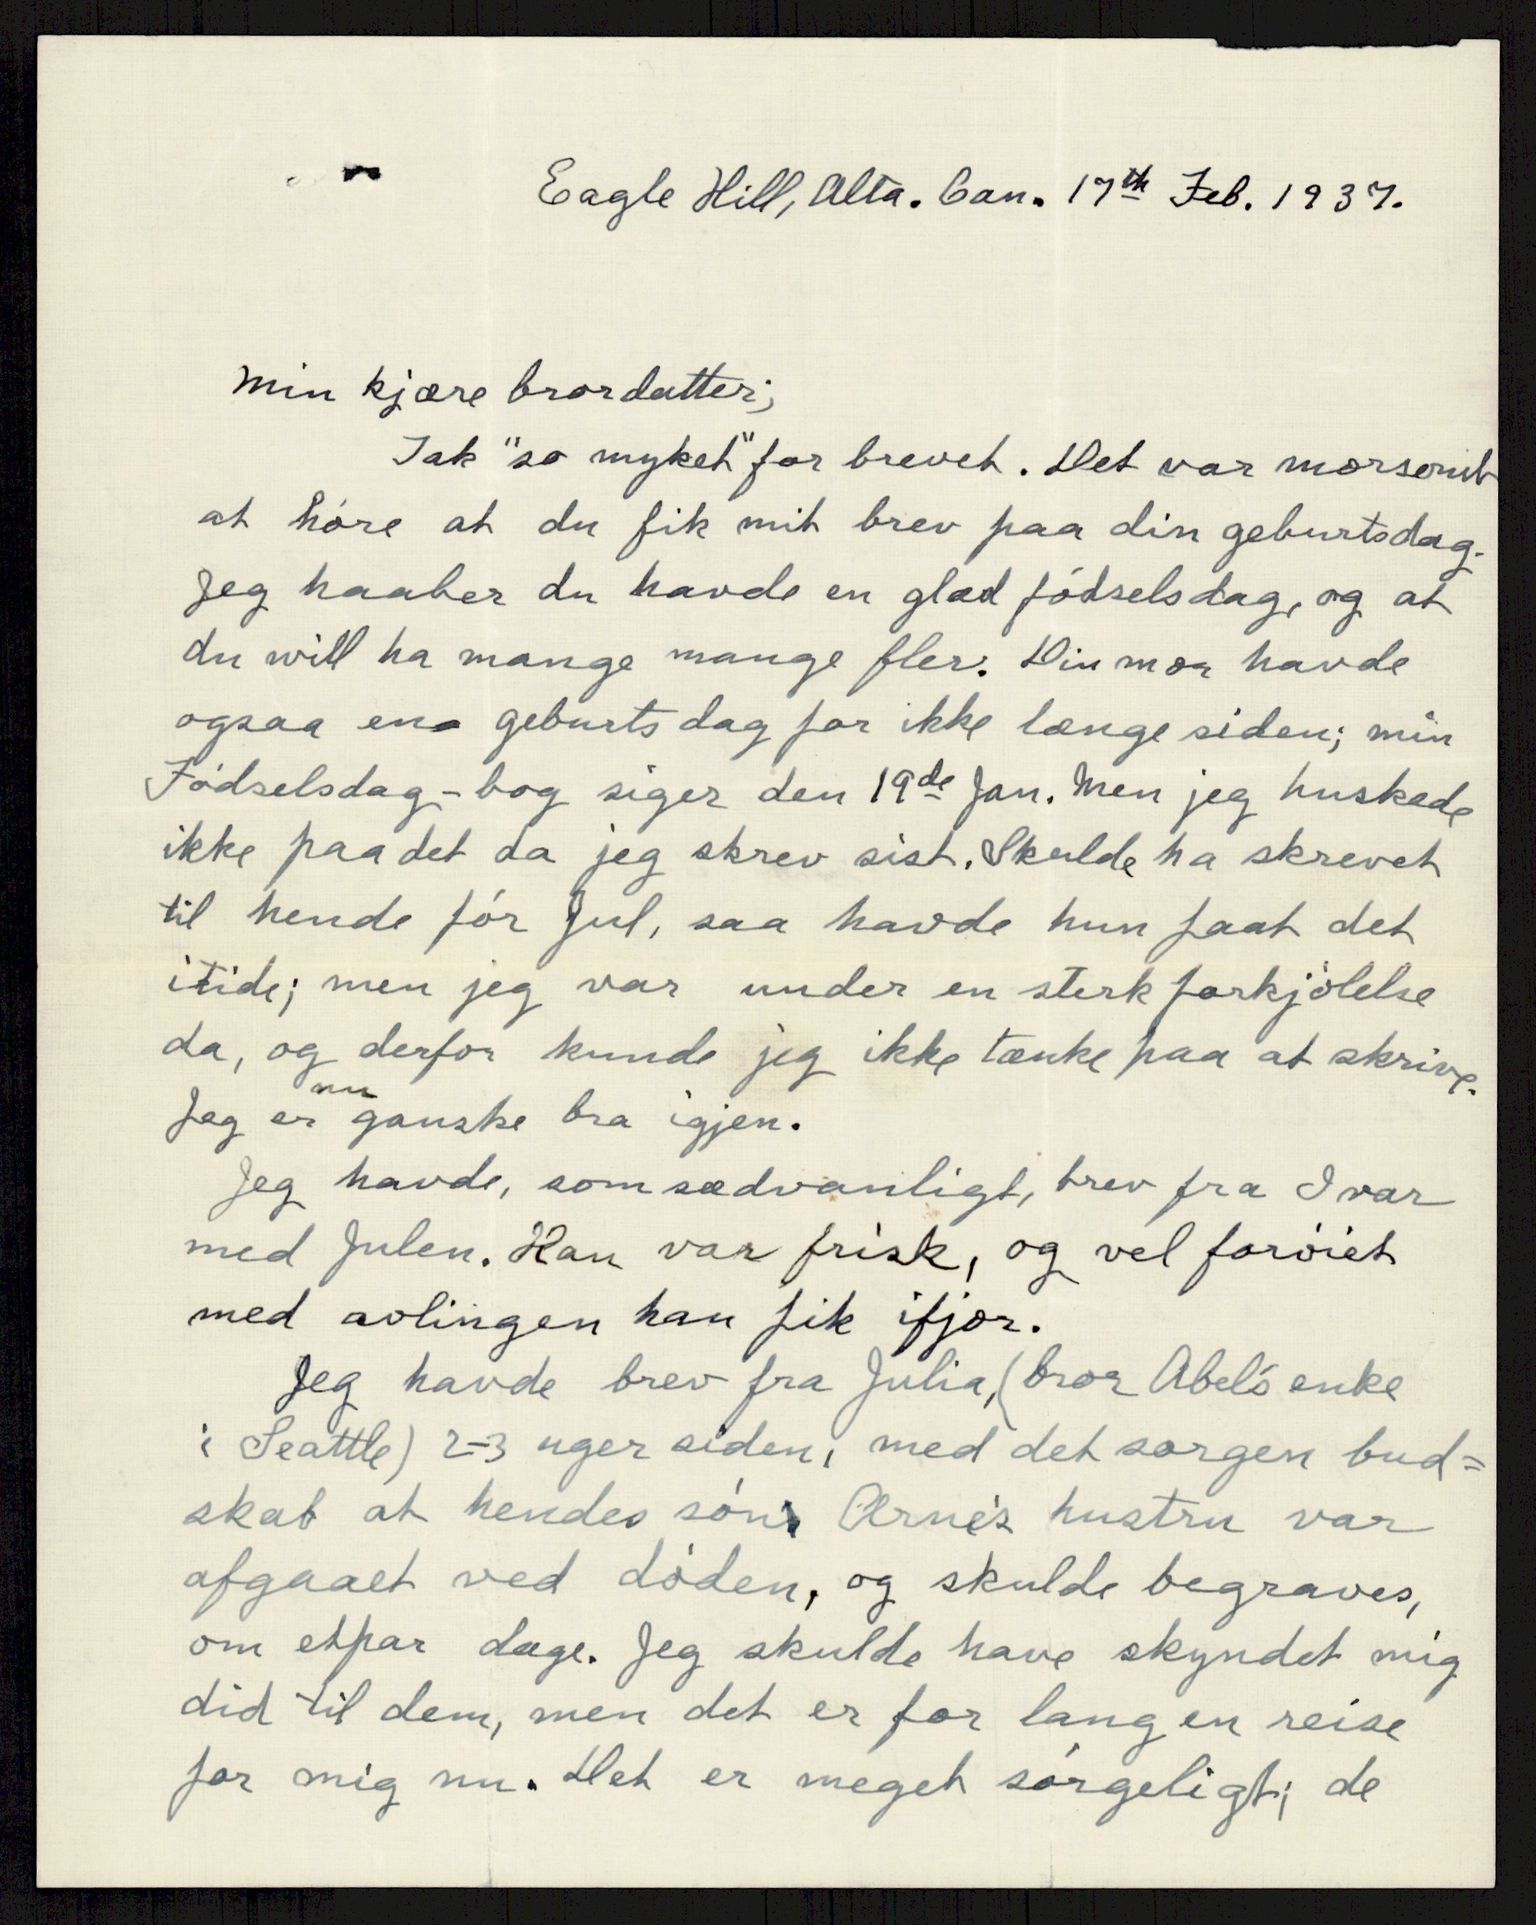 Eagle Hill, Alta. Can. 17th Feb. 1937.
Min kjære brordatter;
Tak "so myket" for brevet. Det var morsomt
at høre at du fik mit brev paa din geburtsdag.
Jeg haaber du havde en glad fødselsdag, og at
du will ha mange mange fler. Din mor havde
ogsaa en geburtsdag for ikke længe siden; min
Fødselsdag-bog siger den 19de Jan. Men jeg huskede
ikke paa det da jeg skrev sist. Skulde ha skrevet
til hende før Jul, saa havde hun faat det
itide; men jeg var under en sterk forkjølelse
da, og derfor kunde jeg ikke tænke paa at skrive.
Jeg er nu ganske bra igjen.
Jeg havde, som sædvanligt, brev fra Ivar
med Julen. Han var frisk, og vel forøiet
med avlingen han fik ifjor.
Jeg havde brev fra Julia, (bror Abel's enke
i Seattle) 2-3 uger siden, med det sorgen bud=
skab at hendes søn Arne's hustru var
afgaaet ved døden, og skulde begraves,
om etpar dage. Jeg skulde have skyndet mig
did til dem, men det er for lang en reise
for mig nu. Det er meget sørgeligt; de